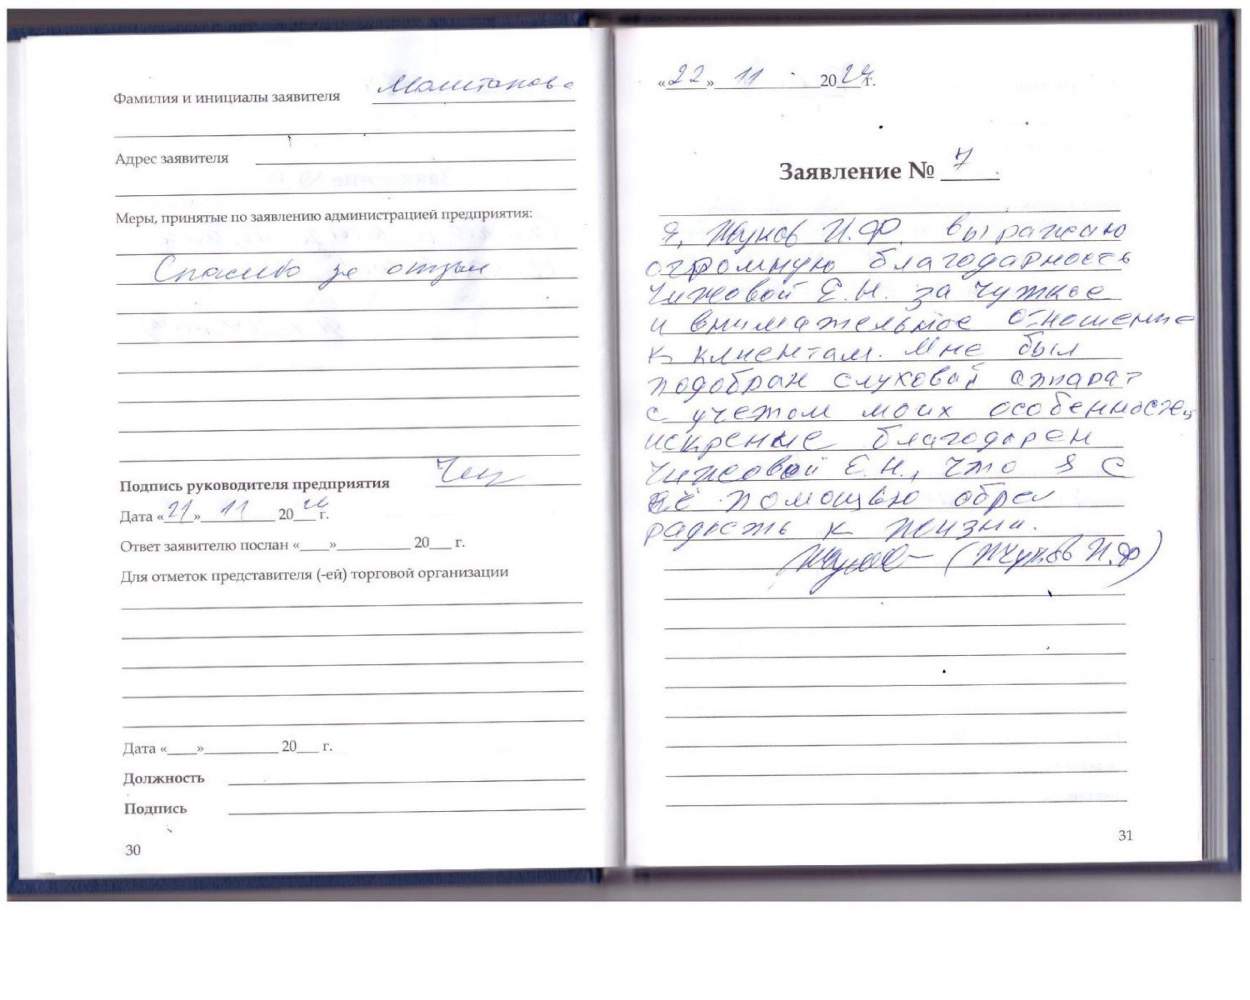 Фамилия и инициалы заявителя
Адрес заявителя
Меры, принятые по заявлению администрацией предприятия:
Спасибо за отзыв
Подпись руководителя предприятия
Дата «21» 11 2024 г.
Ответ заявителю послан «___»__________ 20___ г.
Для отметок представителя (-ей) торговой организации
Дата «____»__________ 20___ г.
Должность
Подпись
30
«22» 11 2024 г.
Заявление № 7
Я, Жуков И.Ф. выражаю
огромную благодарность
Чижовой Е.Н. за чуткое
и внимательное отношение
к клиентам. Мне был
подобран слуховой аппарат
с учетом моих особенностей
искренне благодарен
Чижовой Е.Н., что я с
её помощью обрел
радость к жизни.
(Жуков И.Ф)
31